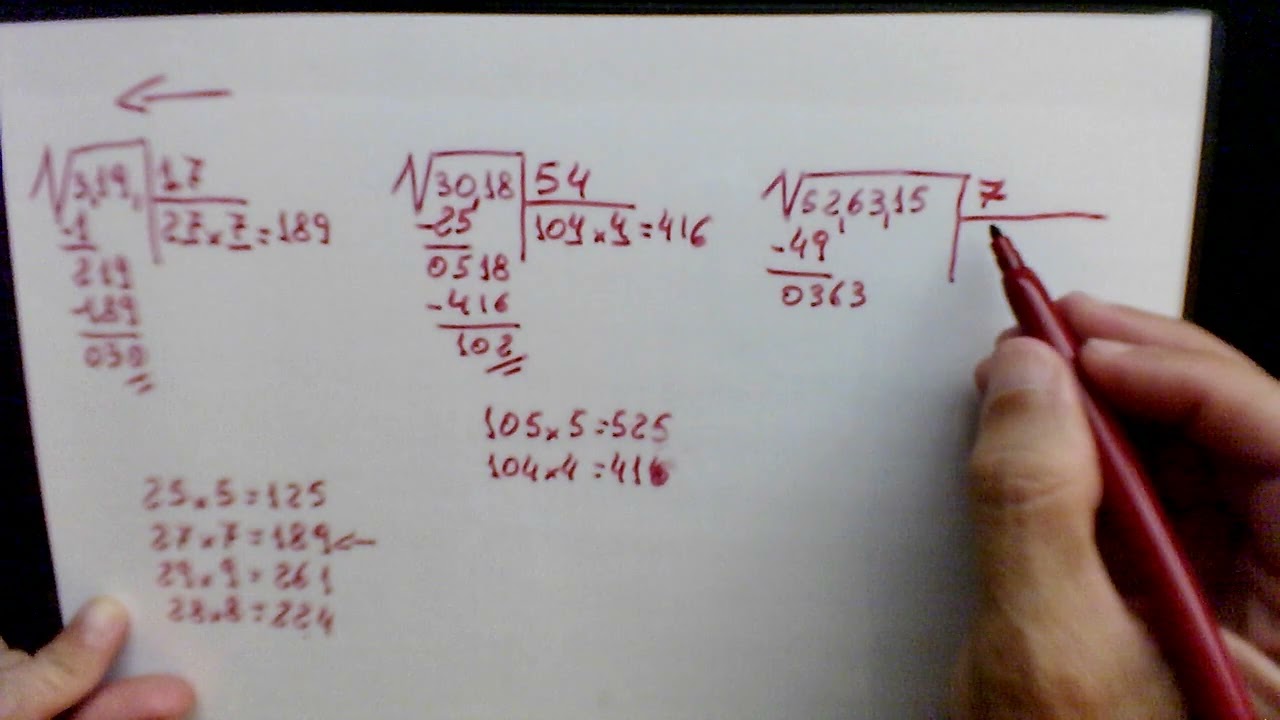 √3,19, 17
-1 27×7=189
219
-189
030
√30,18 54
-25 104×4=416
0518
-416
102
√52,63,15 7
-49
0363
105×5=525
104×4=416
25×5=125
27×7=189←
29×9=261
28×8=224